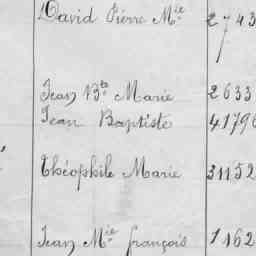 David Pierre M.ie 2743
Jean B.te Marie 2633
Jean Baptiste 41796
Théophile Marie 31152
Jean M.ie françois 1162